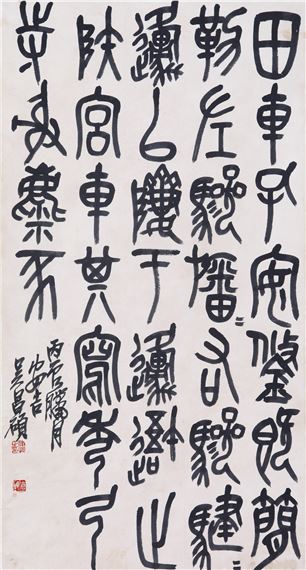 田車孔安鋚既簡
勒左驂旛=右驂騝=
邍以隮于邍止
陕宮車其寫秀弓
寺射麋豕
丙辰臘月
安吉
吳昌碩